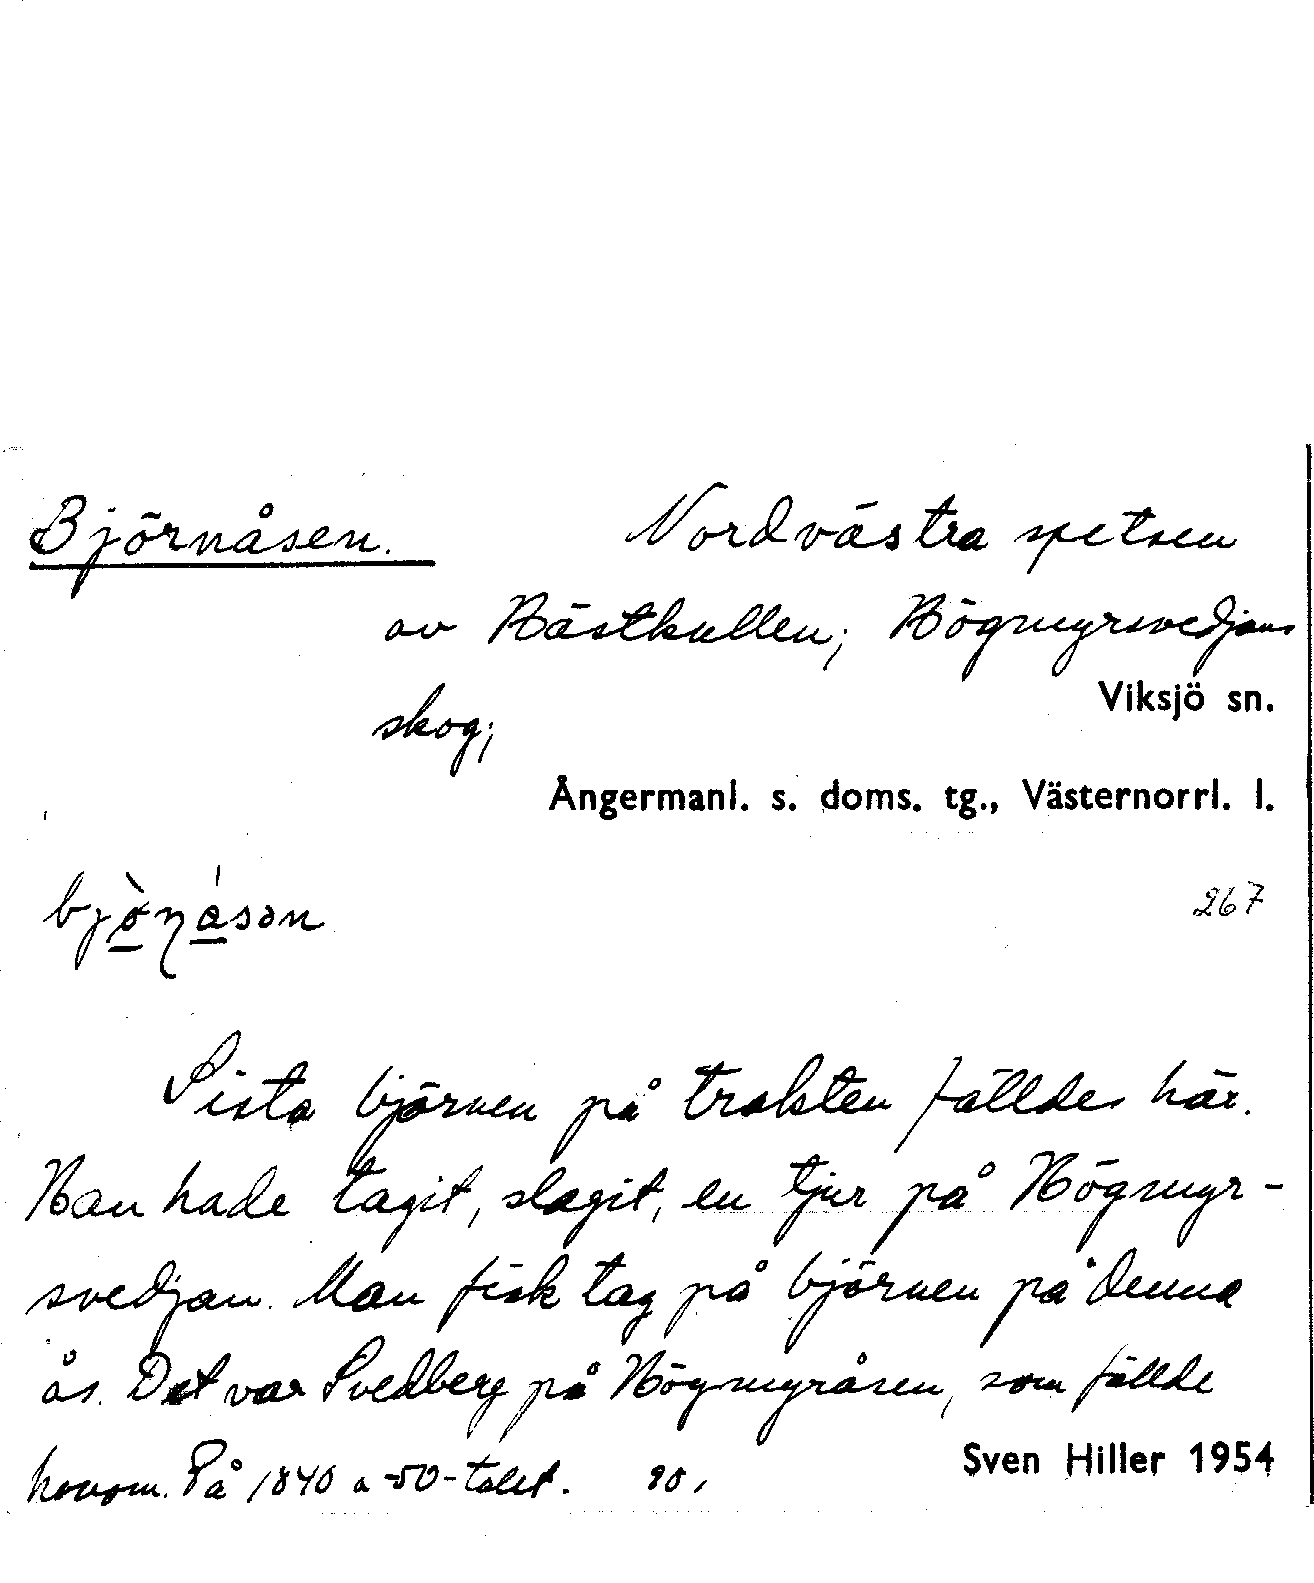 Björnåsen. Nordvästra spetsen
av Hästkullen; Högmyrsvedjans
skog;
Viksjö sn.
Ångermanl. s. doms. tg., Västernorrl. l.
267
Sista björnen på trakten fälldes här.
Han hade tagit, slagit, en tjur på Högmyr-
svedjan. Man fick tag på björnen på denna
ås. Det var Svedberg på Högmyråsen, som fällde
honom. På 1840 a -50-talet. 90,
Sven Hiller 1954